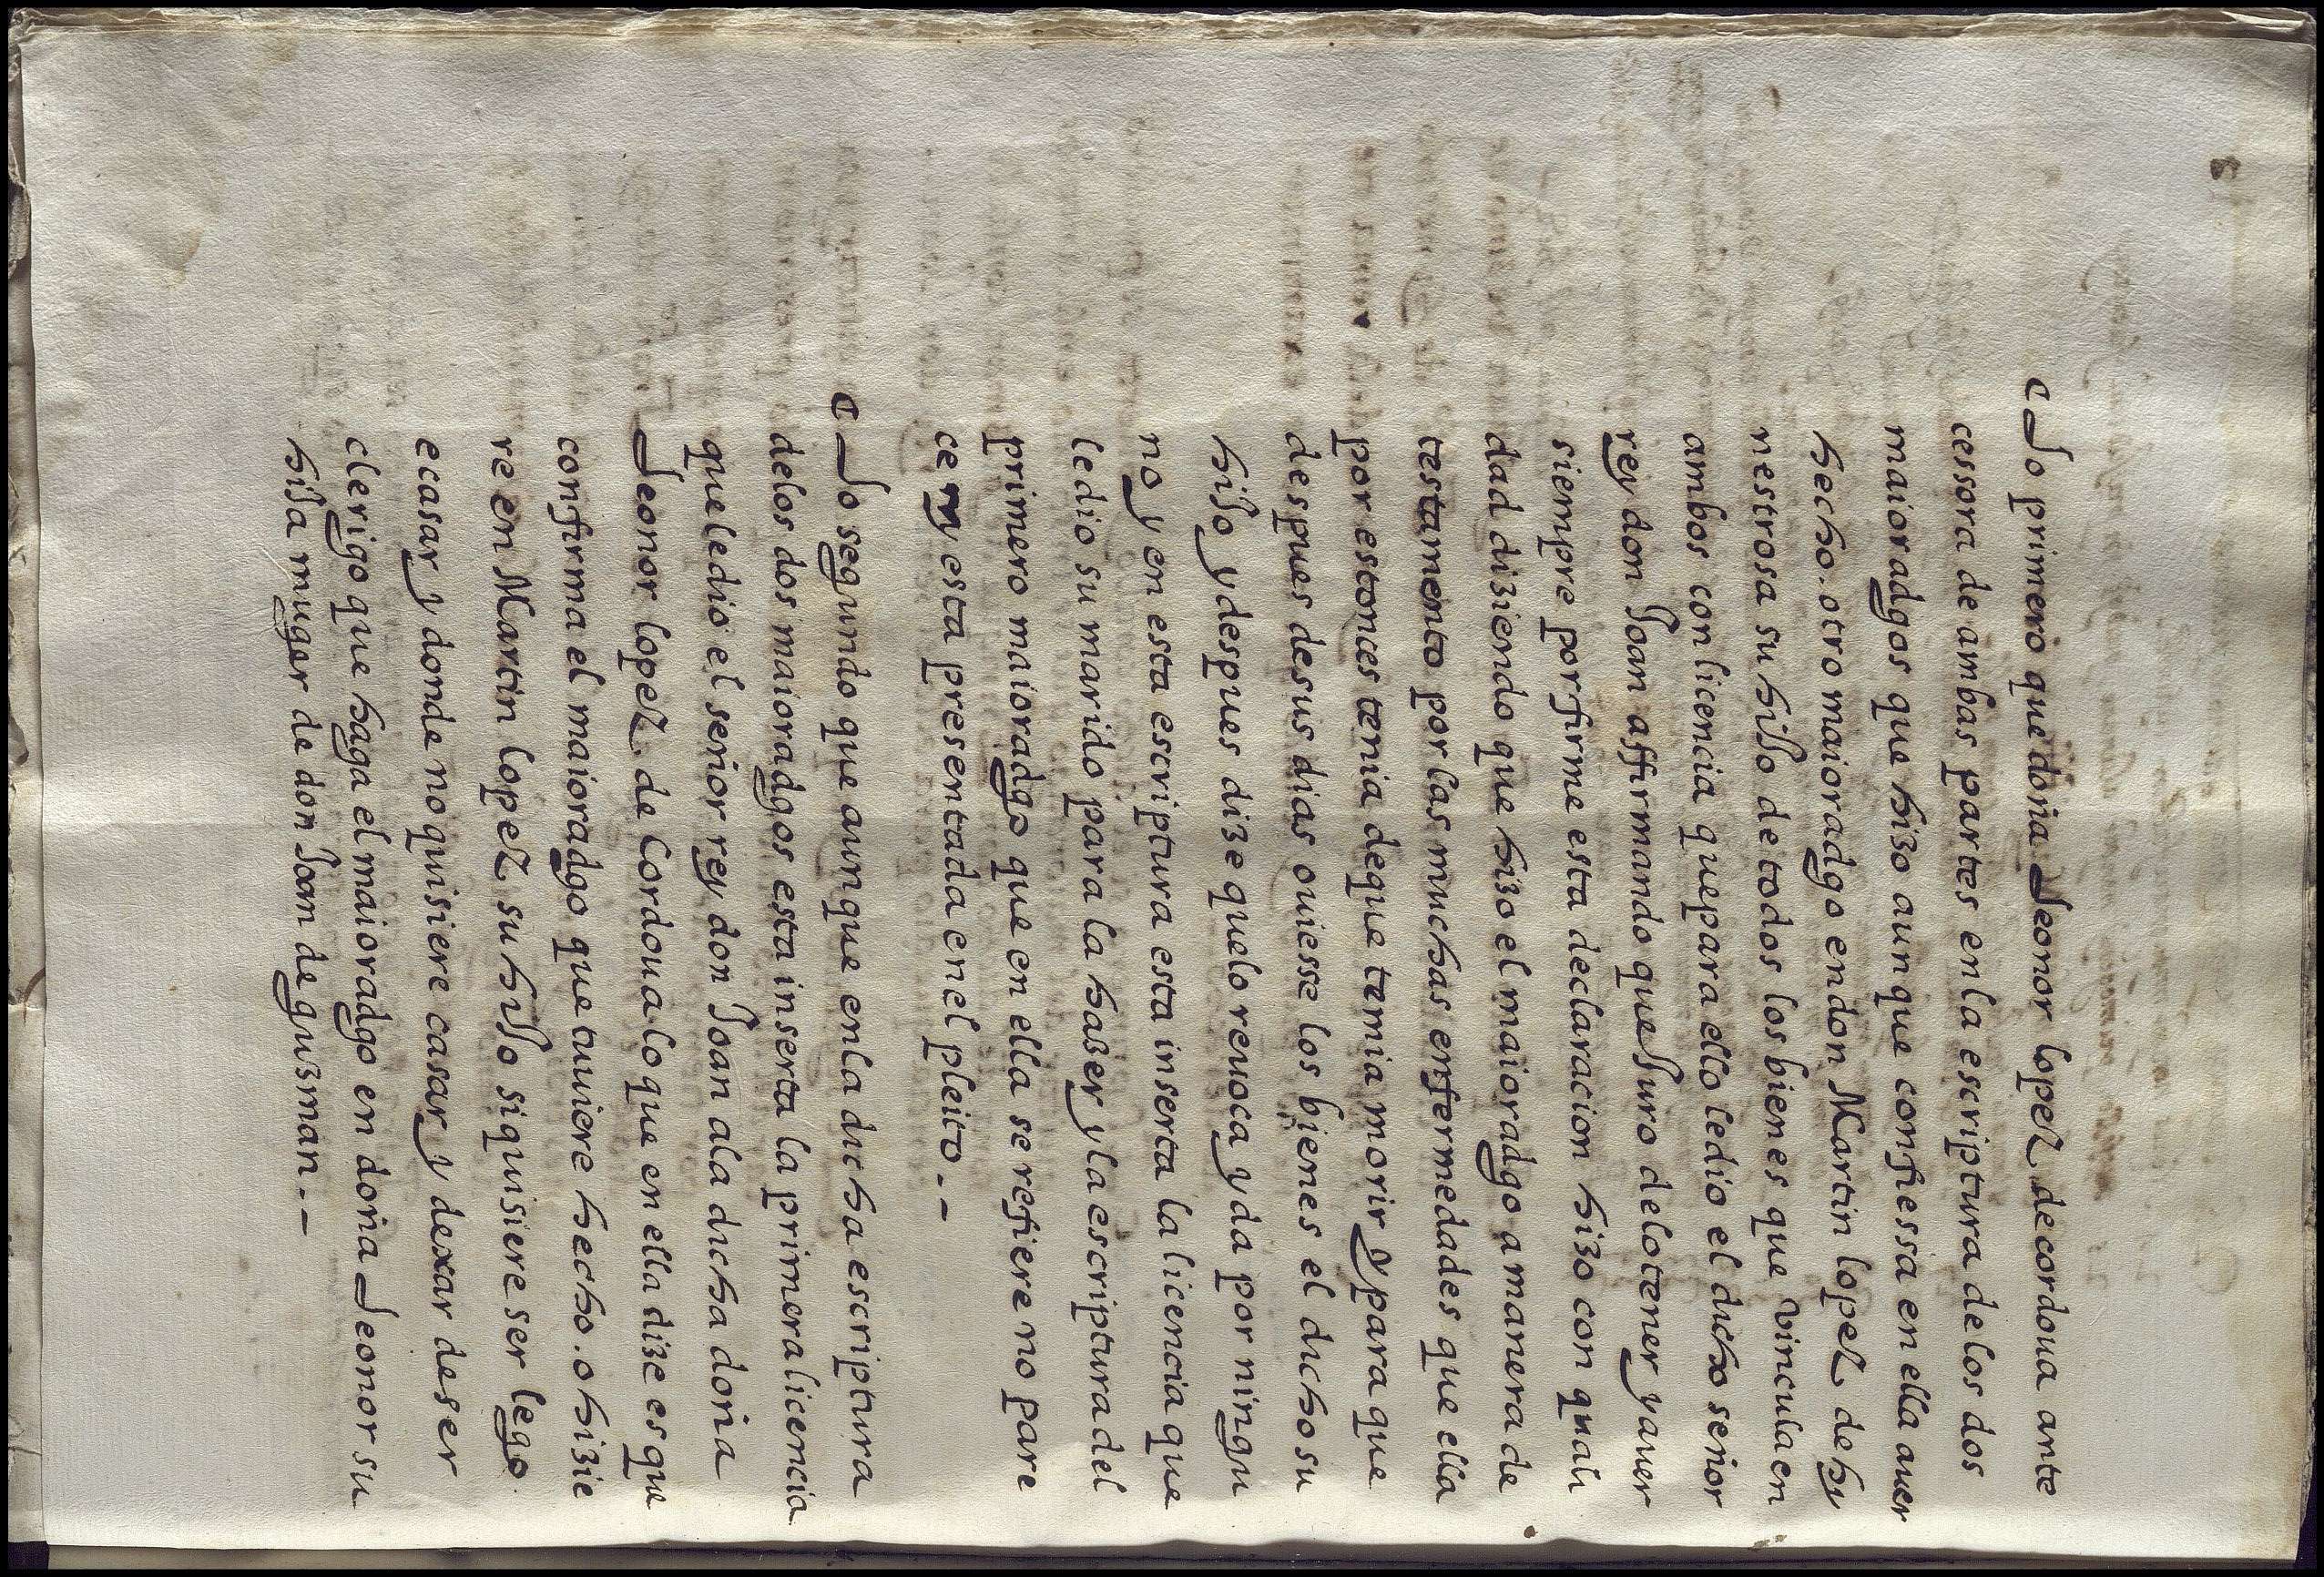 Lo primero que doña Leonor lopez de cordoua ante
cessora de ambas partes en la escriptura de los dos
maioradgos que hizo aunque confiessa en ella auer
hecho otro maioradgo en don Martin lopez de hy
nestrosa su hijo de todos los bienes que vincula en
ambos con licencia que para ello le dio el dicho señor
rey don Joan affirmando que juro de lo tener y auer
siempre por firme esta declaracion hizo con quali
dad diziendo que hizo el maioradgo a manera de
testamento por las muchas enfermedades que ella
por estonces tenia de que temia morir y para que
despues de sus dias ouiesse los bienes el dicho su
hijo y despues dize que lo reuoca y da por ningu
no y en esta escriptura esta inserta la licencia que
le dio su marido para la hazer y la escriptura del
primero maioradgo que en ella se refiere no pare
ce ny esta presentada en el pleito.-
Lo segundo que aunque en la dicha escriptura
de los dos maioradgos esta inserta la primera licencia
que le dio el señor rey don Joan a la dicha doña
Leonor lopez de Cordoua lo que en ella dize es que
confirma el maioradgo que tuuiere hecho. o hizie
re en Martin lopez su hijo si quisiere ser lego
e casar y donde no quisiere casar y dexar de ser
clerigo que haga el maioradgo en doña Leonor su
hija muger de don Joan de guzman.-